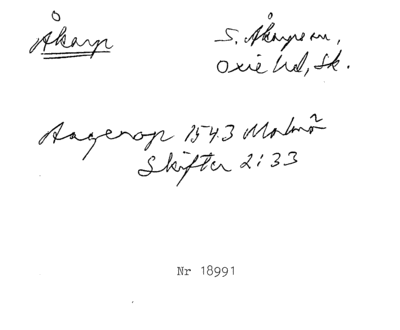 Åkarp
S. Åkarps sn,
Oxie hd, Sk.
Aagerop 1543 Malmö
Skifter 2:33
Nr 18991